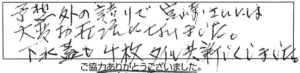 予想外の語りで宮崎さんには
大変お世話になりました。
下水蓋も4枚タル共新しくしました。
ご協力ありがとうございました。